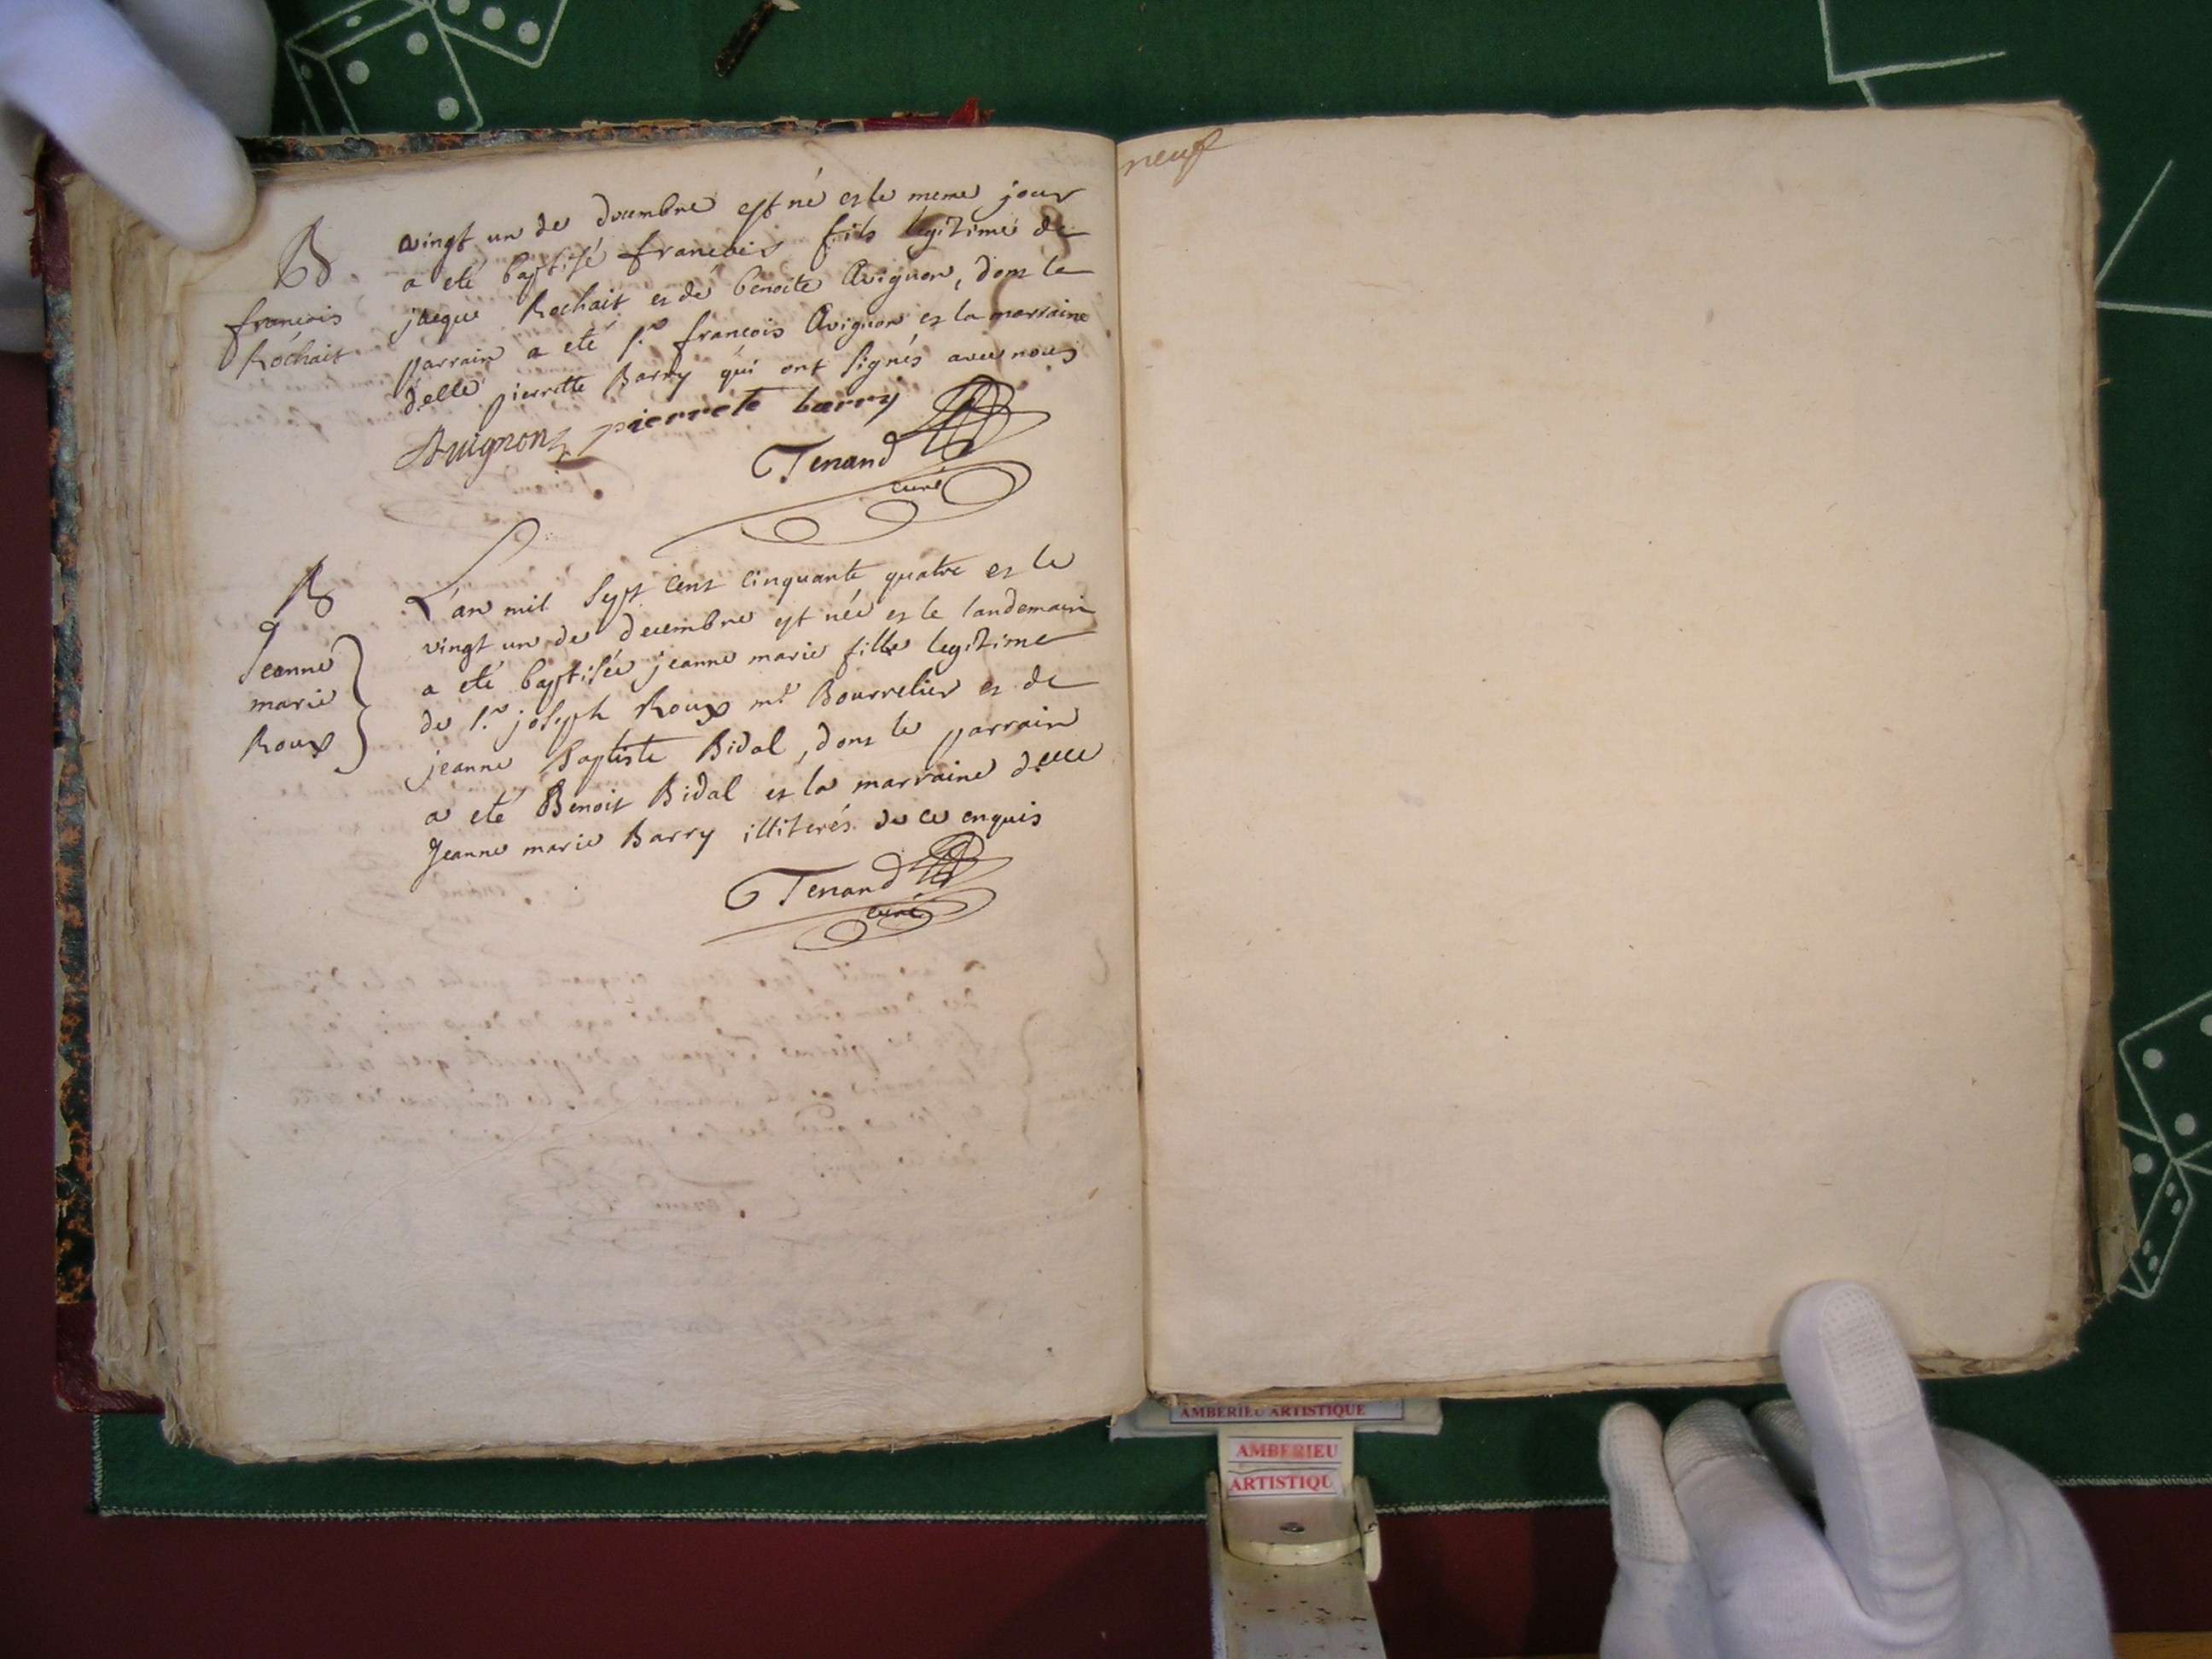 B
françois
Rochait
vingt un de decembre est né et le meme jour
a eté baptisé françois fils legitime de
jaque Rochait et de benoite Avignon, dont le
parrain a eté sr. françois Avignon et la marraine
delle pierrette Barry qui ont signés avec nous
Avignon pierrete barry
Tenand
curé
B
Jeanne
marie
Roux
L'an mil sept cent cinquante quatre et le
vingt un de decembre est née et le landemain
a eté baptisée jeanne marie fille legitime
de sr. joseph Roux mt Bourrelier et de
jeanne baptiste Bidal, dont le parrain
a eté Benoit Bidal et la marraine delle
Jeanne marie Barry illiterés de ce enquis
Tenand
curé
neuf
AMBERIEU ARTISTIQUE
AMBERIEU
ARTISTIQU